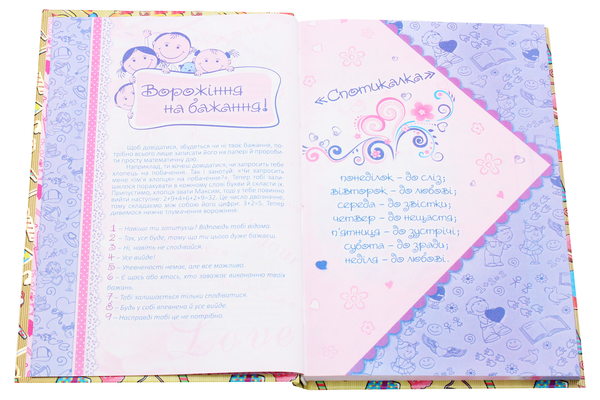 Ворожіння
на бажання!
Щоб довідатися, збудеться чи ні твоє бажання, по-
трібно всього лише записати його на папері й пророби-
ти просту математичну дію.
Наприклад, ти хочеш довідатися, чи запросить тебе
хлопець на побачення. Так і запитуй: «Чи запросить
мене «ім'я хлопця» на побачення?». Тепер тобі зали-
шилося порахувати в кожному слові букви й скласти їх.
Припустимо, хлопця звати Максим, тоді у тебе повинно
вийти наступне: 2+9+4+6+2+9=32. Це число двозначне,
тому складаємо між собою його цифри: 3+2=5. Тепер
дивимося нижче тлумачення ворожіння.
1 – Навіщо ти запитуєш? Відповідь тобі відома.
2 – Так, усе буде, тому що ти цього дуже бажаєш.
3 – Ні, навіть не сподівайся.
4 – Усе вийде!
5 – Упевненості немає, але все можливо.
6 – Є щось або хтось, хто заважає виконанню твоїх
бажань.
7 – Тобі залишається тільки сподіватися.
8 – Будь у собі впевнена й усе вийде.
9 – Насправді тобі це не потрібно.
Love
«Спотикалка»
понеділок – до сліз;
вівторок – до любові;
середа – до звістки;
четвер – до нещастя;
п'ятниця – до зустрічі;
субота – до зради;
неділя – до любові.